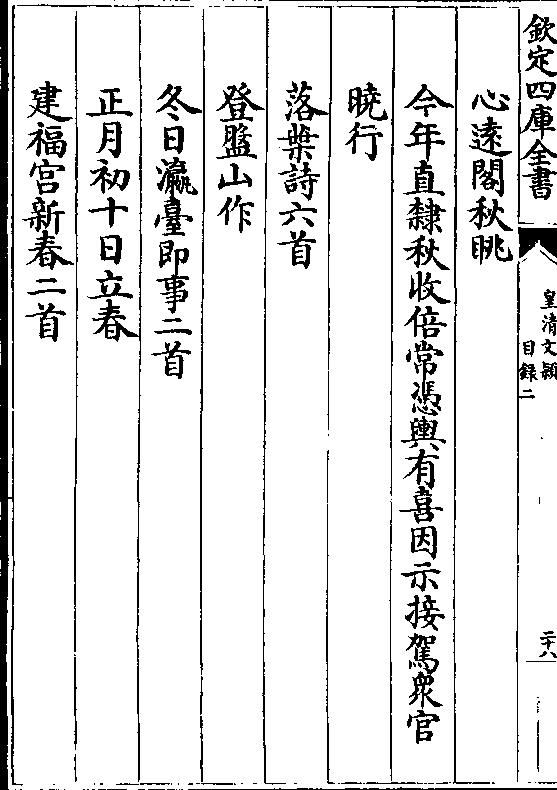 欽定四庫全書
皇清文穎
目録二
二十八
心逺閣秋眺
今年直隸秋收倍常憑輿有喜因示接駕衆官
曉行
落葉詩六首
登盤山作
冬日瀛臺即事二首
正月初十日立春
建福宫新春二首